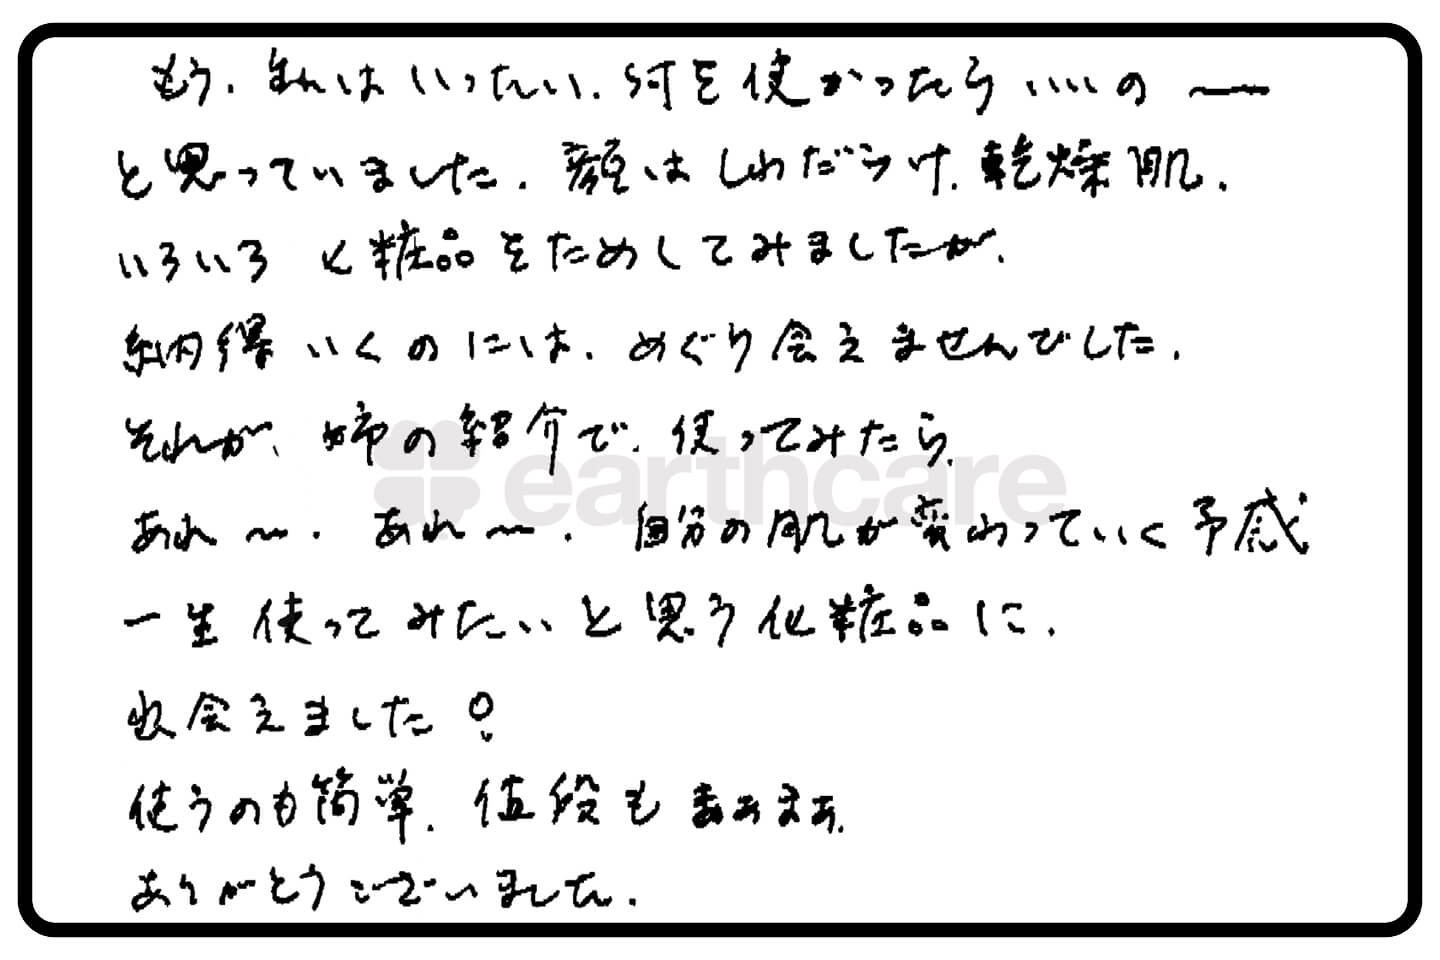 もう、私はいったい、何を使かったらいいの〜
と思っていました。顔はしわだらけ、乾燥肌。
いろいろ化粧品をためしてみましたが、
納得いくのには、めぐり会えませんでした。
それが、姉の紹介で、使ってみたら、
earthcare
あれ〜、あれ〜、自分の肌が変わっていく予感
一生使ってみたいと思う化粧品に、
出会えました!
使うのも簡単、値段もまあまあ、
ありがとうございました。